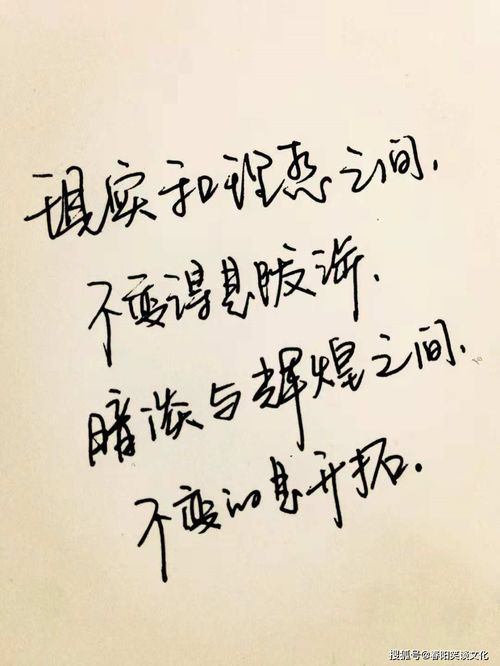 现实和理想之间，
不变得是跋涉，
暗淡与辉煌之间，
不变的是开拓。
搜狐号@春阳笑谈文化